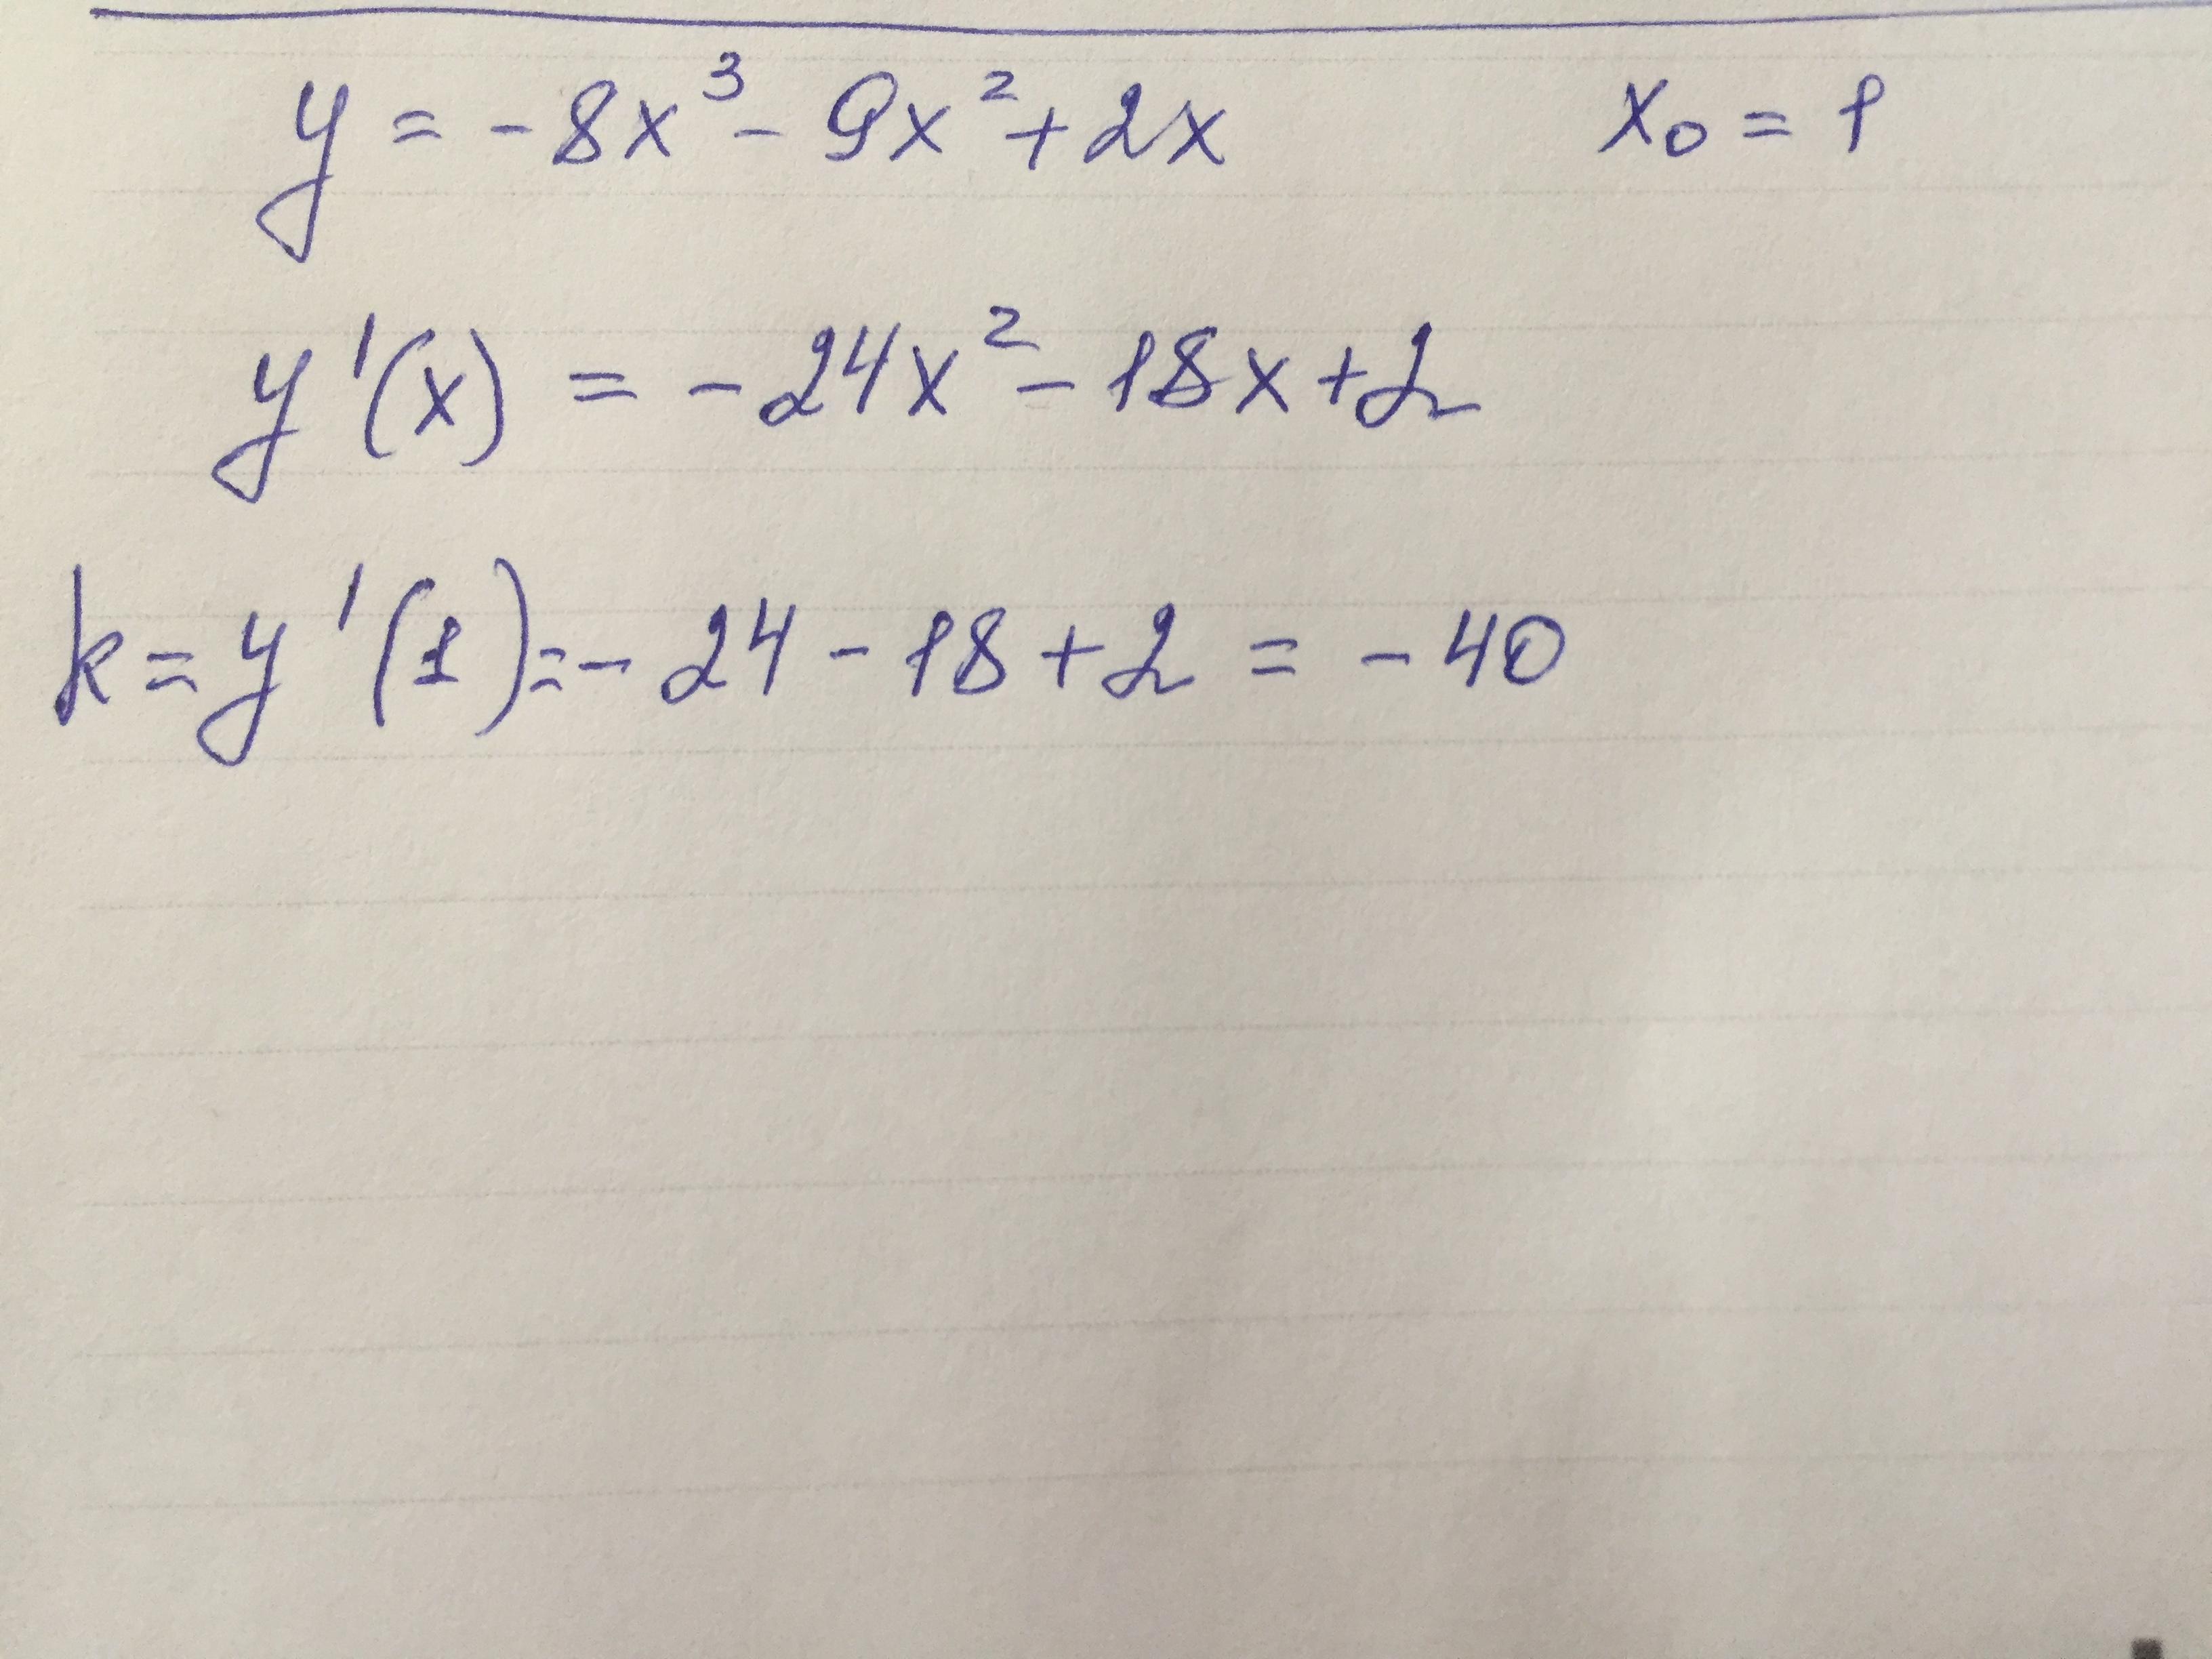 y = -8x³ - 9x² + 2x x₀ = 1
y'(x) = -24x² - 18x + 2
k = y'(1) = -24 - 18 + 2 = -40